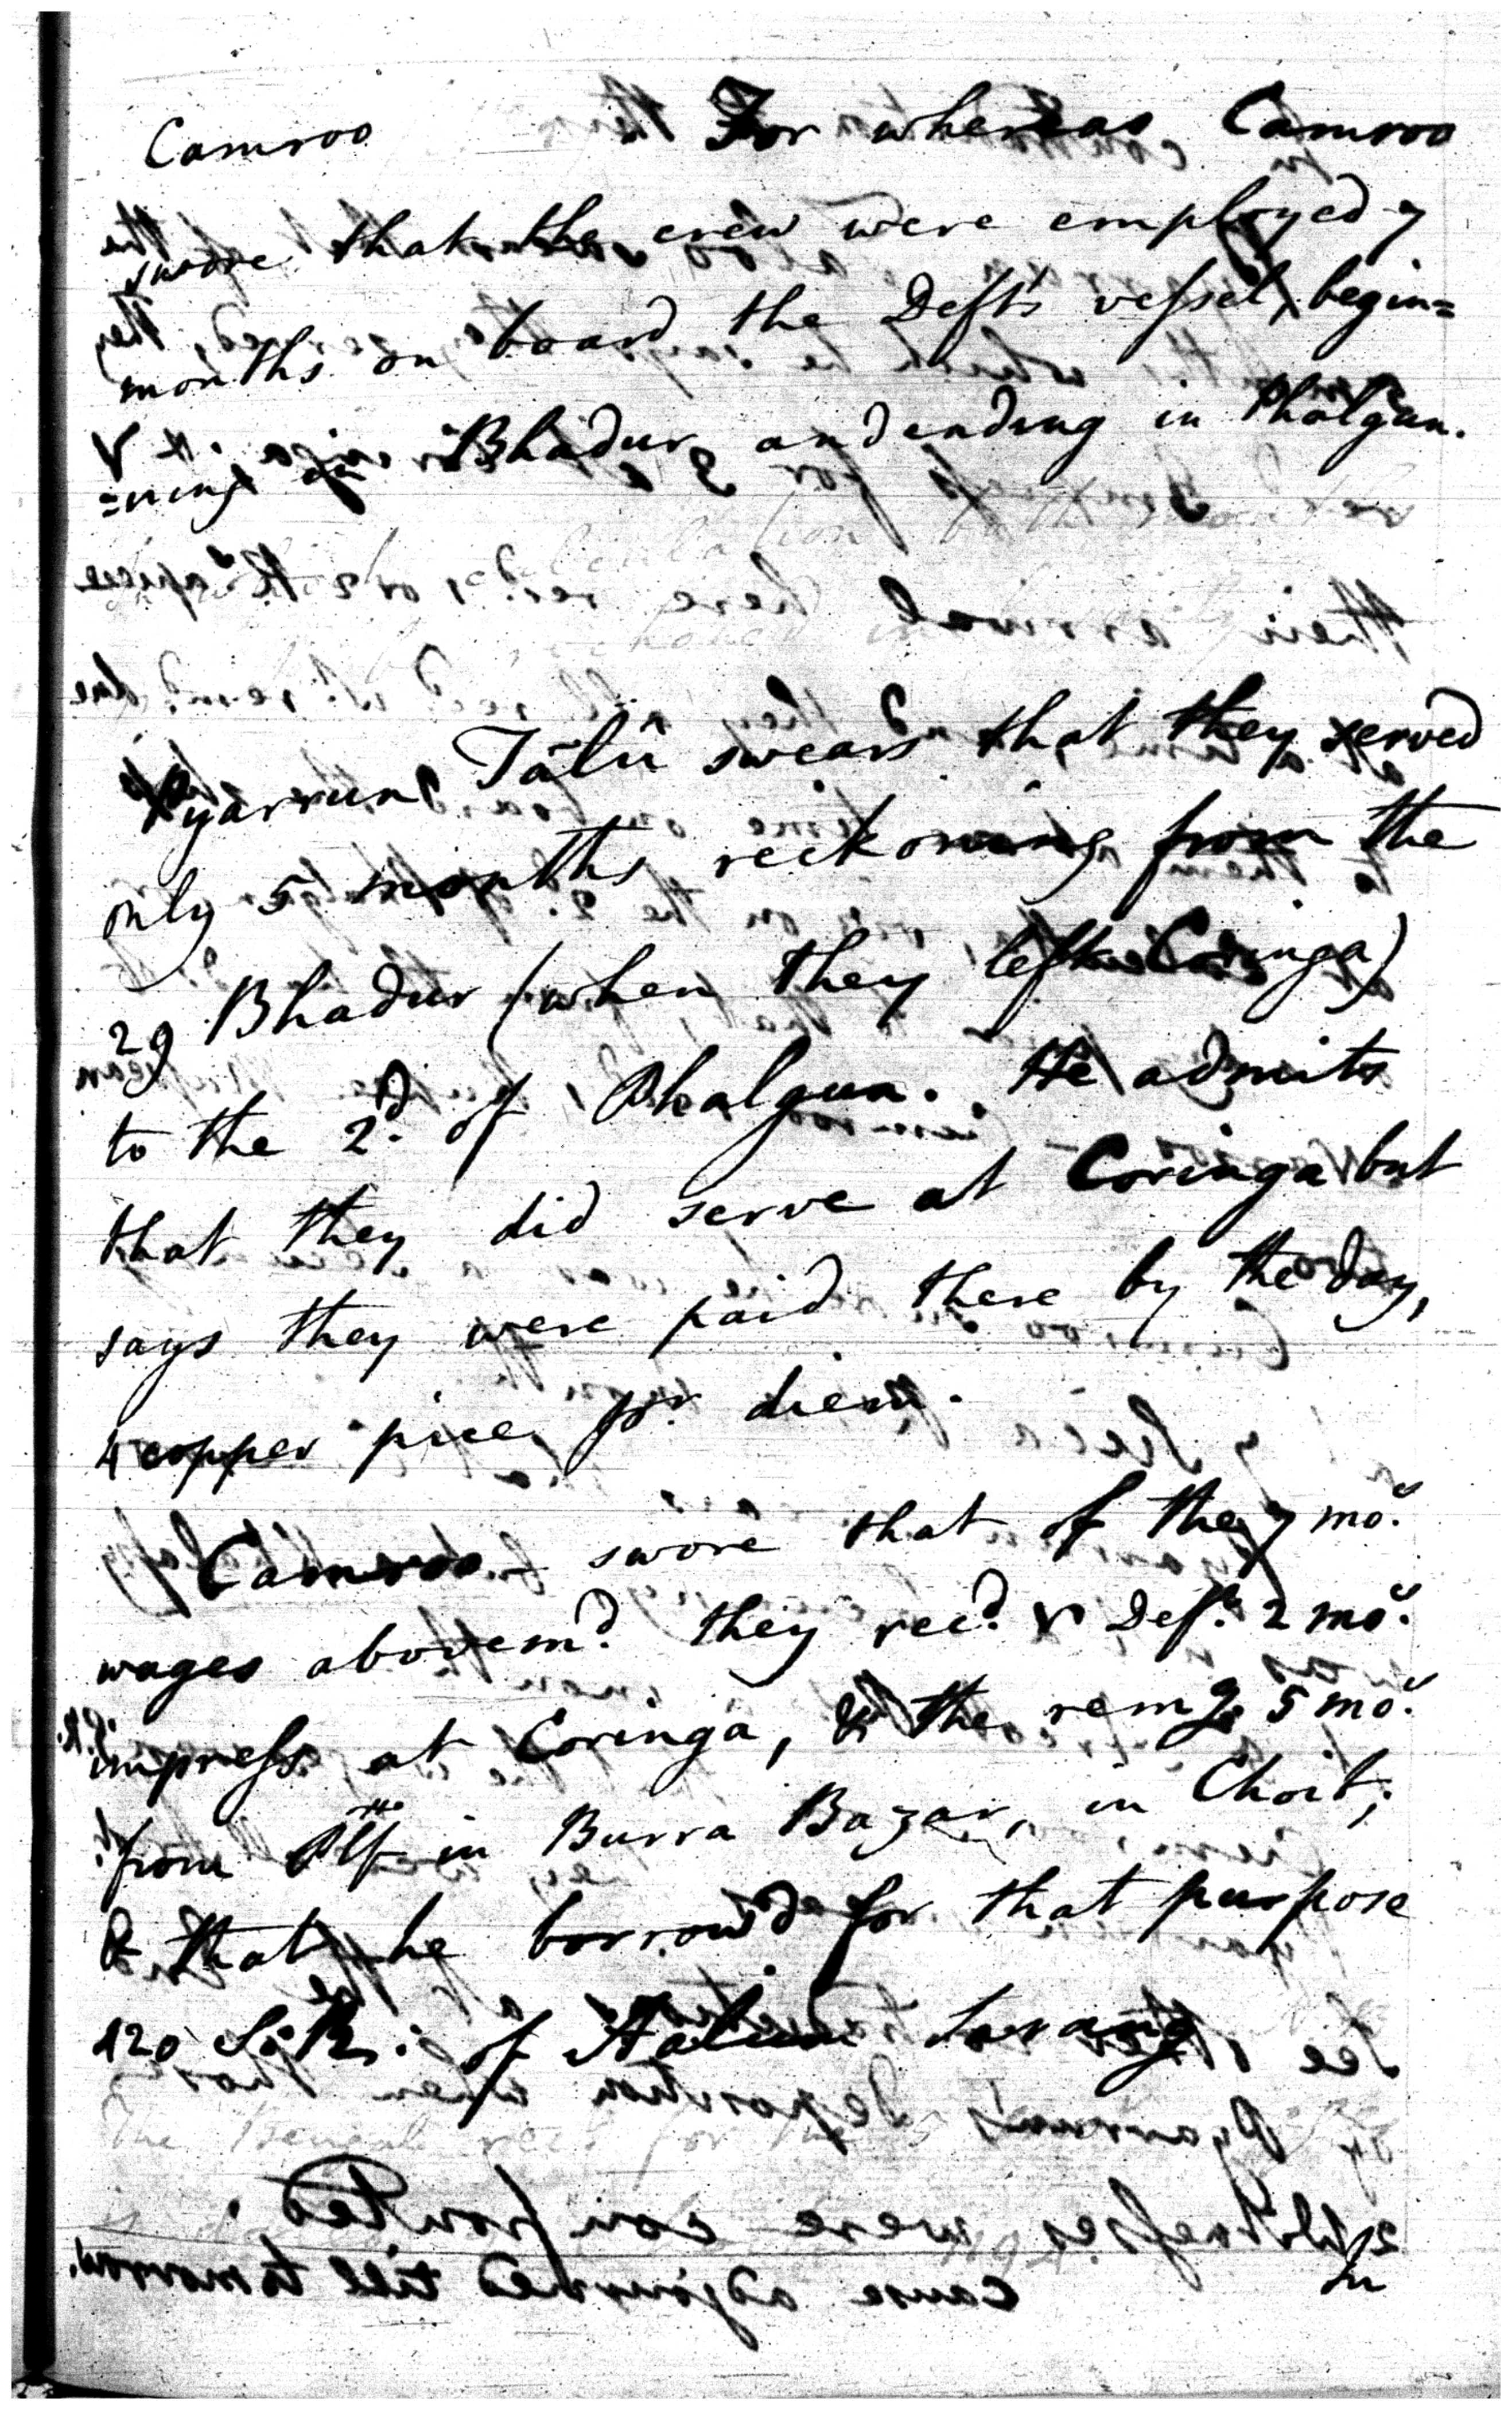 Camroo For whereas Camroo
swore that the crew were employed 7
months on board the Deft's vessel, begin=
=ning in Bhadur and ending in Phalgun.
Pyarrun Tálû swears that they served
only 5 months reckoning from the
29 Bhadur (when they left Coringa)
to the 2d. of Phalgun. He admits
that they did serve at Coringa but
says they were paid there by the day,
4 copper pice pr. diem.
Camroo swore that of the 7 mos.
wages abovemd. they recd. Deft. 2 mos.
impress at Coringa, & the remg. 5 mos.
from Plf in Burra Bazar, in Choit;
& that he borrow'd for that purpose
120 S. Rs. of Sarang
In